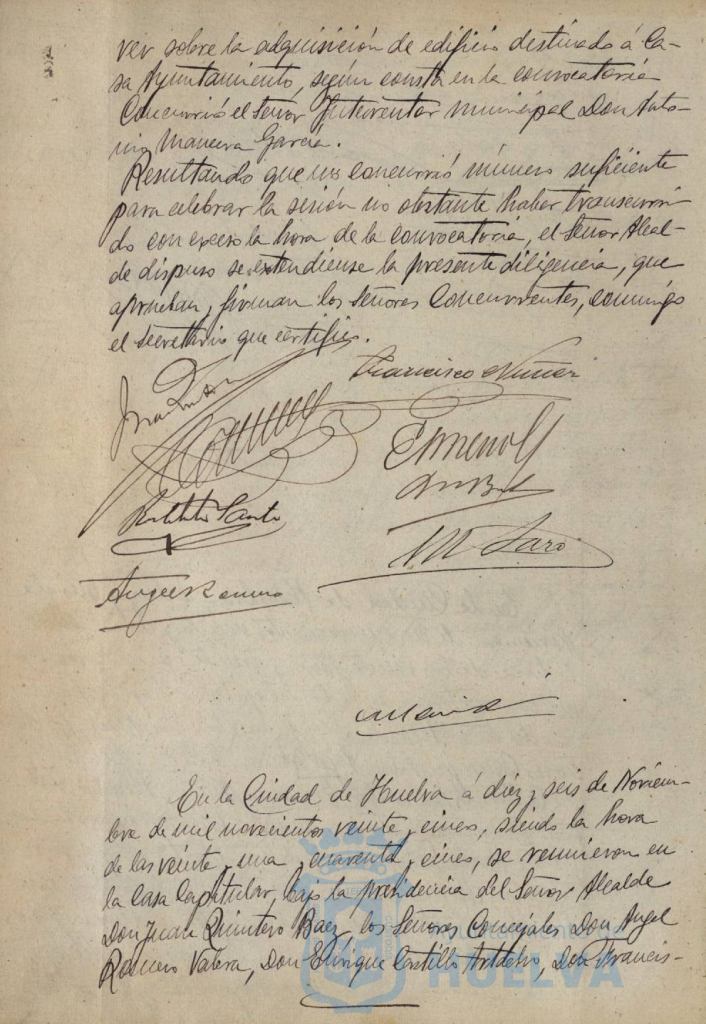 ver sobre la adquisición de edificio destinado á Ca-
sa Ayuntamiento, según consta en la convocatoria
Concurrió el señor Interventor municipal Don Anto-
nio Manceva García.
Resultando que no concurrió número suficiente
para celebrar la sesión no obstante haber transcurri-
do con exceso la hora de la convocatoria, el Señor Alcal-
de dispuso se extendiense la presente diligencia, que
aprueban y firman los Señores Concurrentes, conmigo
el secretario que certifico.
Francisco Nuñez
M. Saro
Angel Romero
En la Ciudad de Huelva á diez y seis de Noviem-
bre de mil novecientos veinte y cinco, siendo la hora
de las veinte y una y cuarenta y cinco, se reunieron en
la Casa Capitular, bajo la presidencia del Señor Alcalde
Don Juan Quintero Baez, los Señores Concejales Don Angel
Romero Valera, Don Enrique Castillo Don Francis-
HUELVA